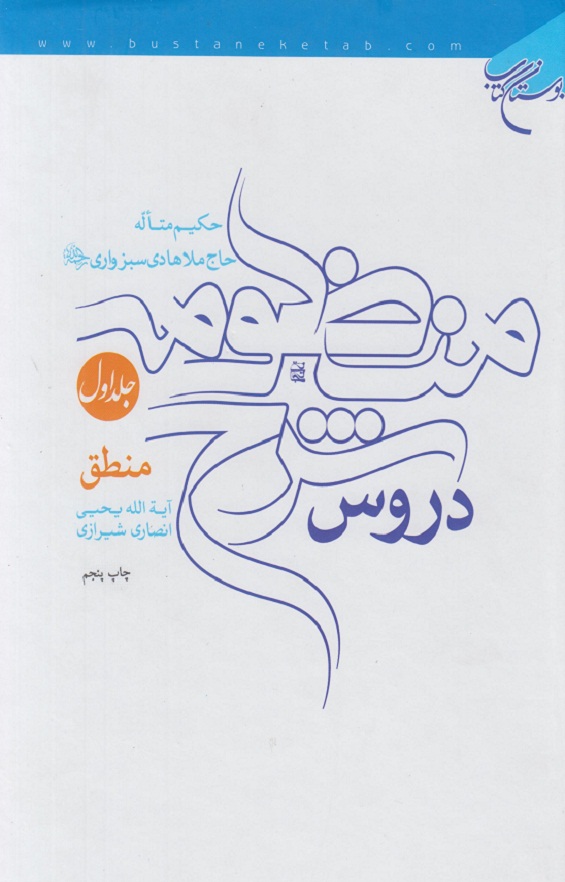 www.bustaneketab.com
بوستان کتاب
حکیم متألّه
حاج ملاهادی سبزواری
دروس
شرح
منظومه
جلد اول
منطق
آیة الله یحیی
انصاری شیرازی
چاپ پنجم